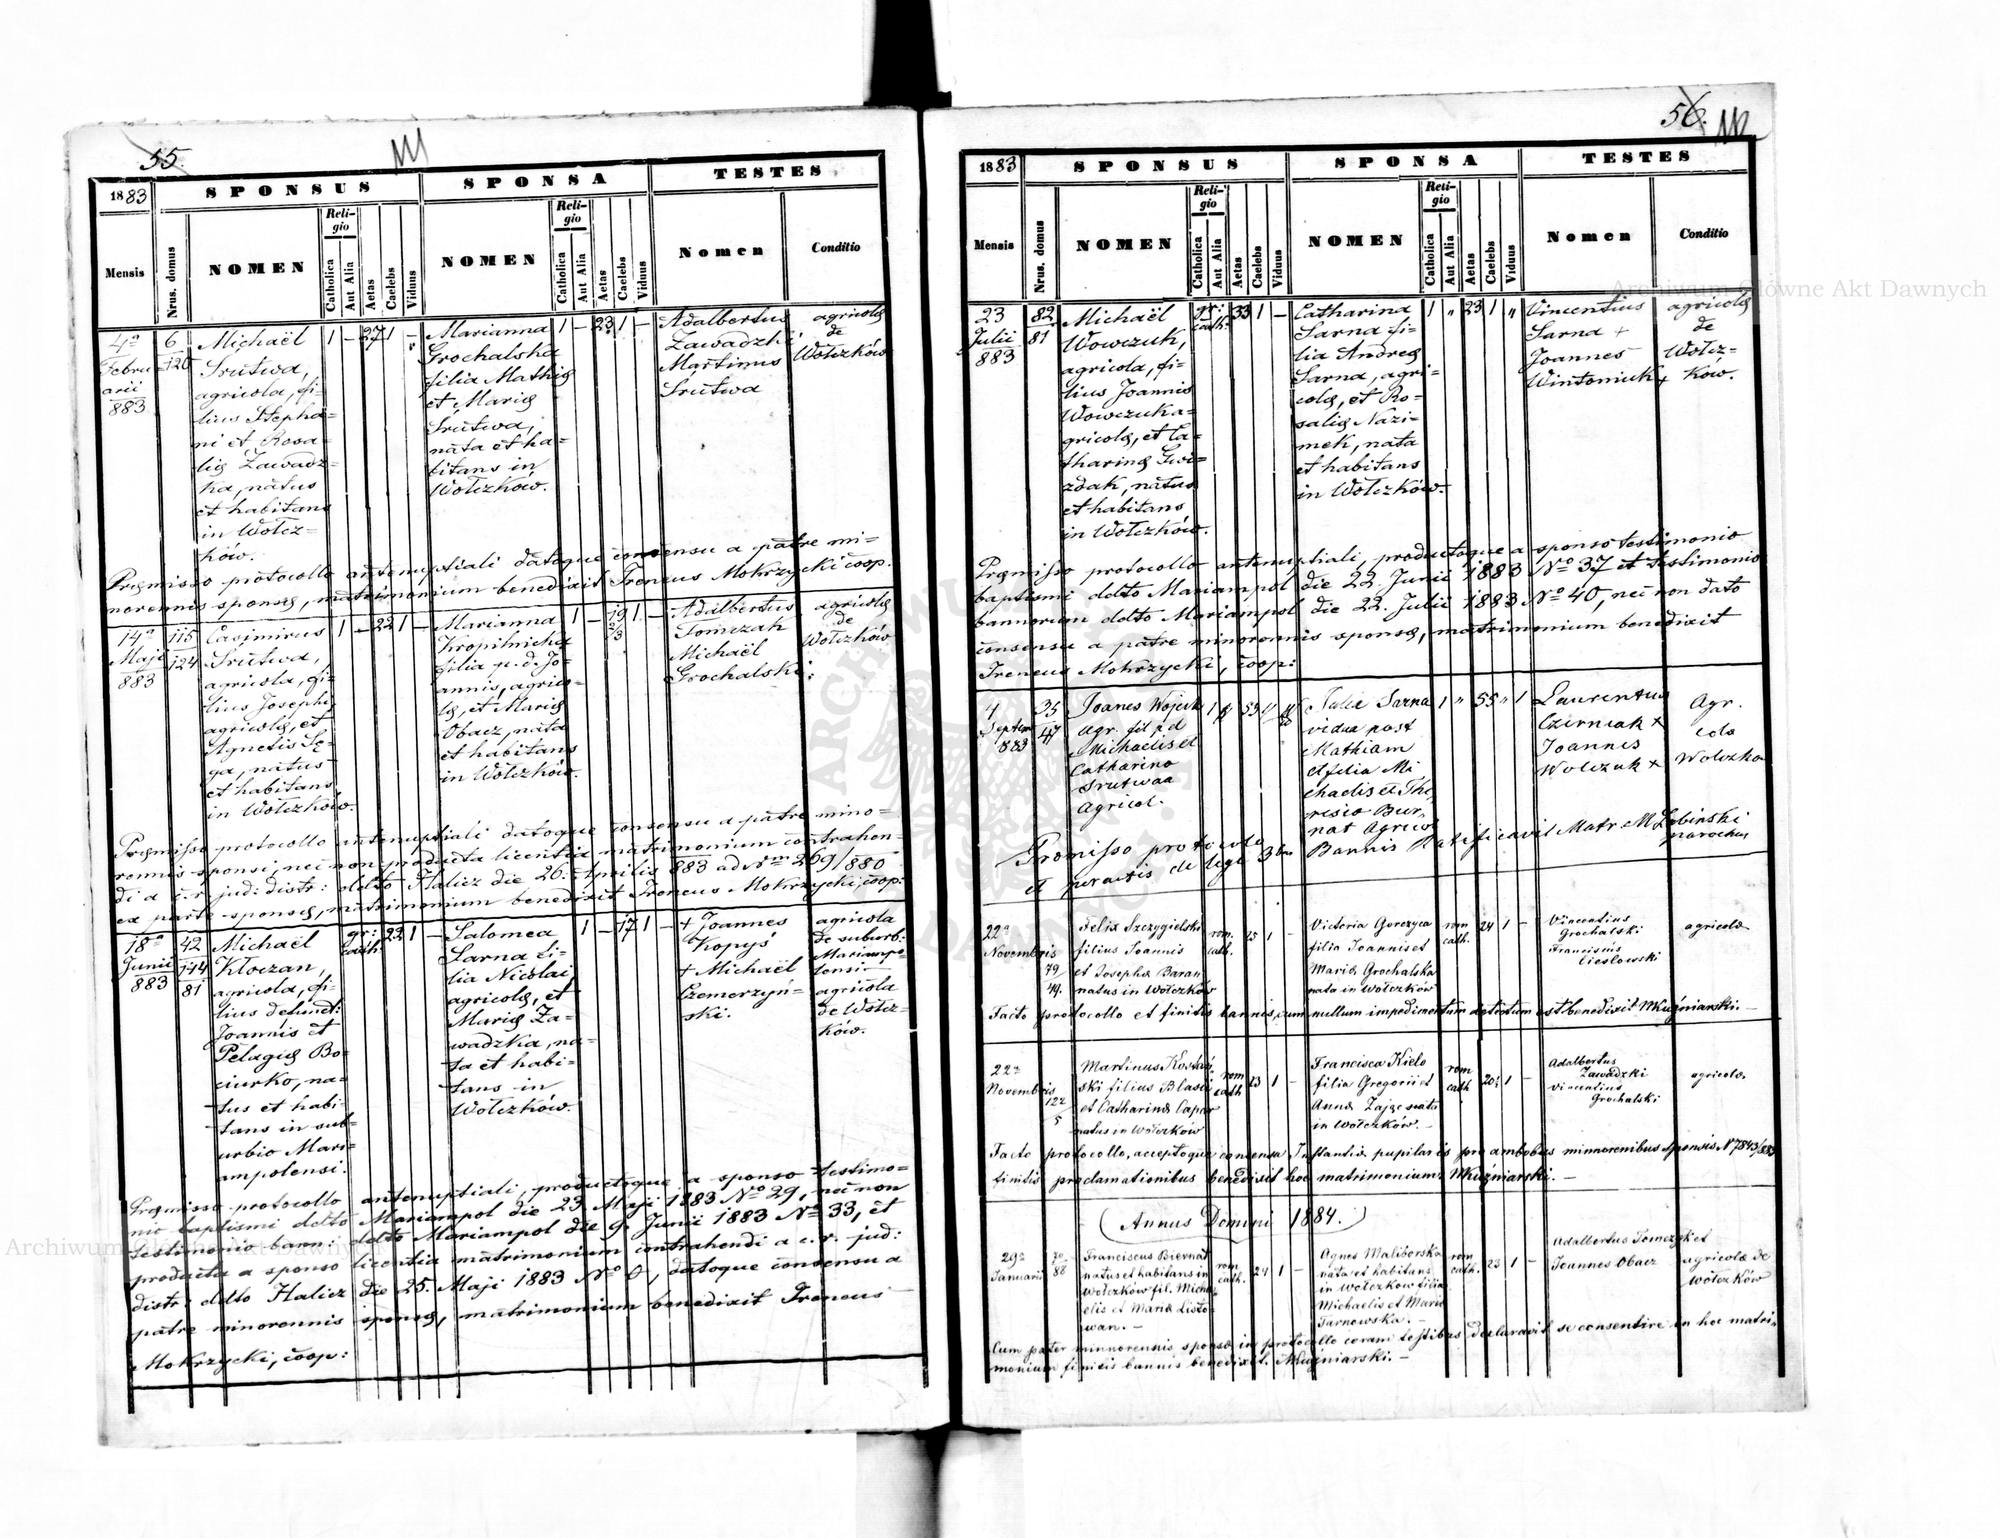 55.
1883
SPONSUS
SPONSA
TESTES
Mensis
Nrus. domus
NOMEN
Religio
Catholica
Aut Alia
Aetas
Caelebs
Viduus
NOMEN
Religio
Catholica
Aut Alia
Aetas
Caelebs
Viduus
Nomen
Conditio
4a
Febru
arii
883
6
120
Michaël
Srutwa,
agricola, fi-
lius Stepha-
ni et Rosa-
lię Zawadz-
ka, natus
et habitans
in Wołcz-
ków.
1 – 27 1 –
Marianna
Grochalska
filia Mathię
et Marię
Srutwa,
nata et ha-
bitans in
Wołczków.
1 – 23 1 –
Adalbertus
Zawadzki
Martinus
Srutwa
agricolę
de
Wołczków
Pręmisso protocollo antenuptiali datoque consensu a patre mi-
norennis sponsę, matrimonium benedixit Ireneus Mokrzycki coop.
14a
Maji
883
115
124
Casimirus
Srutwa,
agricola, fi-
lius Josephi
agricolę, et
Agnetis Sę-
ga, natus
et habitans
in Wołczków.
1 – 22 1 –
Marianna
Kropilnicka
filia p. d. Jo-
annis, agrico-
lę, et Marię
Obacz, nata
et habitans
in Wołczków.
1 – 19 1 –
Adalbertus
Tomczak
Michaël
Grochalski
agricolę
de
Wołczków
Pręmisso protocollo antenuptiali datoque consensu a patre mino-
rennis sponsi, nec non producta licentia matrimonium contrahen-
di a c. r. jud: distr: ddto Halicz die 26. Aprilis 883 ad Nrm 269/880
ex parte sponsę, matrimonium benedixit Ireneus Mokrzycki, coop:
18a
Junii
883
42
144
81
Michaël
Kłoczan,
agricola, fi-
lius defunct:
Joannis et
Pelagię Bo-
ciurko, na-
tus et habi-
tans in sub-
urbio Mari-
ampolensi.
gr:
cath.
22 1 –
Salomea
Sarna fi-
lia Nicolai
agricolę, et
Marię Za-
wadzka, na-
ta et habi-
tans in
Wołczków.
1 – 17 1 –
+ Joannes
Kopyś
+ Michaël
Czemerzyń-
ski.
agricola
de suburb:
Mariampo-
lensi
agricola
de Wołcz-
ków.
Pręmisso protocollo antenuptiali, productoque a sponso testimo-
nio baptismi ddto Mariampol die 23. Maji 1883 No 29, nec non
testimonio bann: ddto Mariampol die 9. Junii 1883 No 33, et
producta a sponso licentia matrimonium contrahendi a c. r. jud:
distr: ddto Halicz die 25. Maji 1883 No 0, datoque consensu a
patre minorennis sponsę, matrimonium benedixit Ireneus
Mokrzycki, coop:
56.
1883
SPONSUS
SPONSA
TESTES
Mensis
Nrus. domus
NOMEN
Religio
Catholica
Aut Alia
Aetas
Caelebs
Viduus
NOMEN
Religio
Catholica
Aut Alia
Aetas
Caelebs
Viduus
Nomen
Conditio
23
Julii
883
82
81
Michaël
Wowczuk,
agricola, fi-
lius Joannis
Wowczuk a-
gricolę, et Ca-
tharinę Gwi-
zdak, natus
et habitans
in Wołczków.
gr:
cath.
33 1 –
Catharina
Sarna fi-
lia Andreę
Sarna, agri-
colę, et Ro-
salię Nazi-
mek, nata
et habitans
in Wołczków.
1 " 23 1 "
Vincentius
Sarna +
Joannes
Wintoniuk +
agricolę
de
Wołcz-
ków.
Pręmisso protocollo antenuptiali, productoque a sponso testimonio
baptismi ddto Mariampol die 22. Junii 1883 No 37 et testimonio
bannorum ddto Mariampol die 22. Julii 1883 No 40, nec non dato
consensu a patre minorennis sponsę, matrimonium benedixit
Ireneus Mokrzycki, coop:
4
Septem
883
35
47
Joanes Wojcik
Agr. fil p d
Michaelis et
Catharina
Srutwaa
Agricol.
1 53
Julia Sarna
vidua post
Mathiam
et filia Mi
chaelis et The
resia Bur,
nat Agricol
1 " 55 " 1
Laurentius
Czerniak +
Joannis
Wolczuk +
Agr.
cola
Wolczko
Promisso protocolo
et peractis de lege 3bus Bannis Ratificavit Matr M Łobinski
parochus
22a
Novembris
79/
49.
Felix Szczygielski
filius Joannis
et Josepha Baran
natus in Wołczków
rom.
cath.
25 1 –
Victoria Gorczyca
filia Joannis et
Maria Grochalska
nata in Wołczków
rom
cath.
24 1 –
Vincentius
Grochalski
Franciscus
Ciesłowski
agricolæ
Facto protocollo et finitis bannis, cum nullum impedimentum detectum est benedixit MKuźniarski. –
22a
Novembris
122/
5
Martinus Kostań
ski filius Blasii
et Catharina Capar
natus in Wołczków
rom
cath
23 1 –
Francisca Kielo
filia Gregorii et
Anna Zając nata
in Wołczków. –
rom
cath.
20 1 –
Adalbertus
Zawadzki
Vincentius
Grochalski
agricolæ.
Facto protocollo, acceptoque consensu Instantiæ pupilaris pro ambobus minnorenibus sponsis N 7843/883
finitis proclamationibus benedixit hoc matrimonium MKuźniarski. –
(Annus Domini 1884.)
29a
Januarii
70
88
Franciscus Biernat
natus et habitans in
Wołczków fil. Micha
elis et Maria Listo
wan. –
rom
cath.
24 1 –
Agnes Maliborska
nata et habitans
in Wołczków filia
Michaelis et Maria
Tarnowska. –
rom
cath.
23 1 –
Adalbertus Tomczyk et
Joannes Obacz
agricolæ de
Wołczków
Cum pater minnorennis sponsæ in protocollo coram testibus declaravit se consentire in hoc matri-
monium finitis bannis benedixit. MKuźniarski. –
Archiwum Główne Akt Dawnych
Archiwum Główne Akt Dawnych